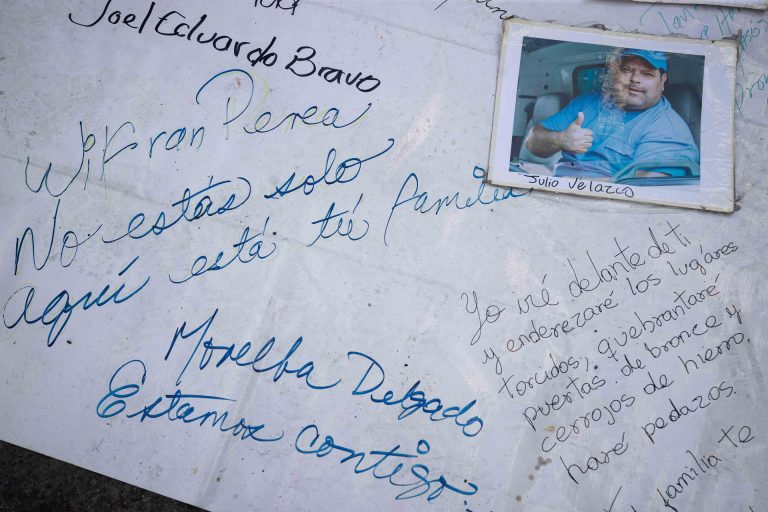 Joel Eduardo Bravo
Wifran Perea
No estás solo
aquí está tú familia
Morelba Delgado
Estamos contigo.
Julio Velazco
Yo iré delante de ti
y enderezaré los lugares
torcidos; quebrantaré
puertas de bronce y
cerrojos de hierro.
haré pedazos.
familia te